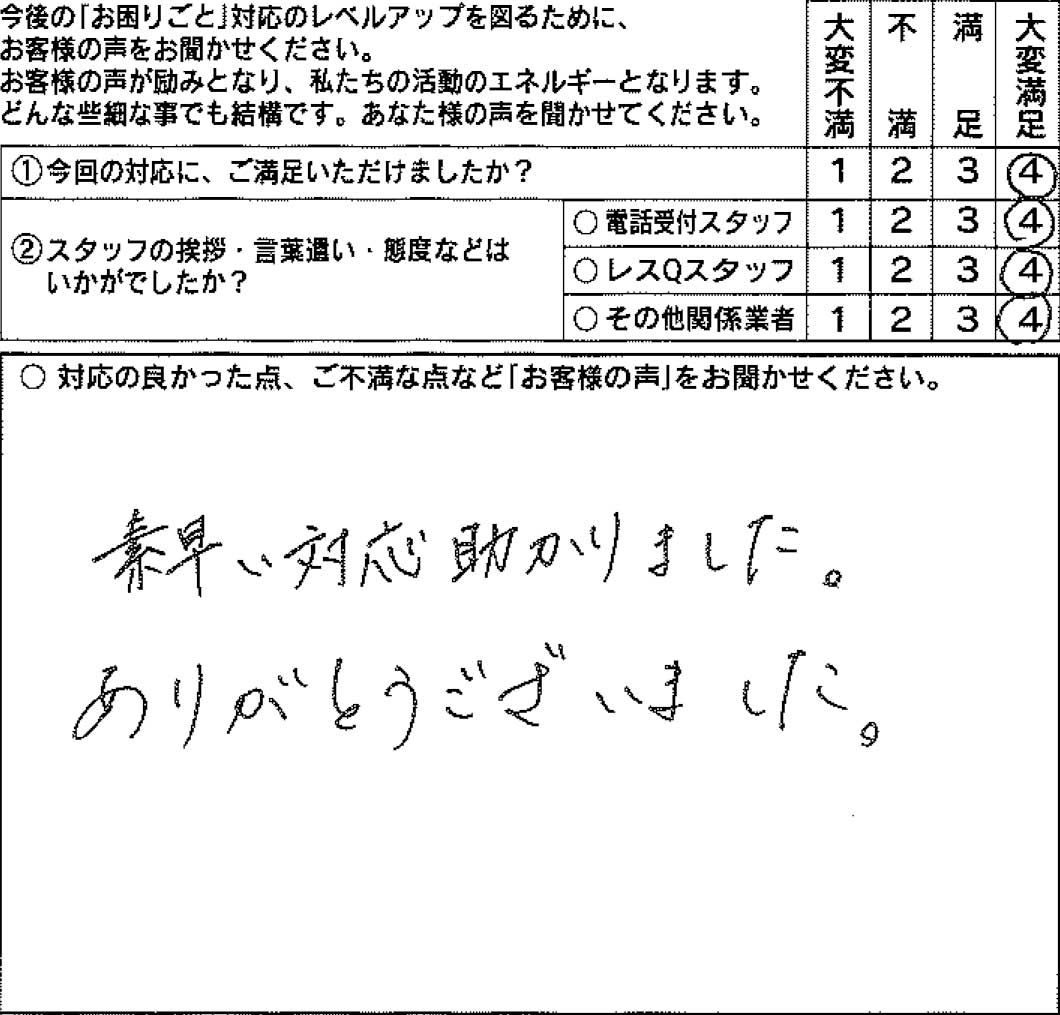 今後の｢お困りごと｣対応のレベルアップを図るために、
お客様の声をお聞かせください。
お客様の声が励みとなり、私たちの活動のエネルギーとなります。
どんな些細な事でも結構です。あなた様の声を聞かせてください。
大変不満 不満 満足 大変満足
①今回の対応に、ご満足いただけましたか？ 1 2 3 4
②スタッフの挨拶・言葉遣い・態度などは
いかがでしたか？
○ 電話受付スタッフ 1 2 3 4
○ レスQスタッフ 1 2 3 4
○ その他関係業者 1 2 3 4
○ 対応の良かった点、ご不満な点など｢お客様の声｣をお聞かせください。
素早い対応助かりました。
ありがとうございました。